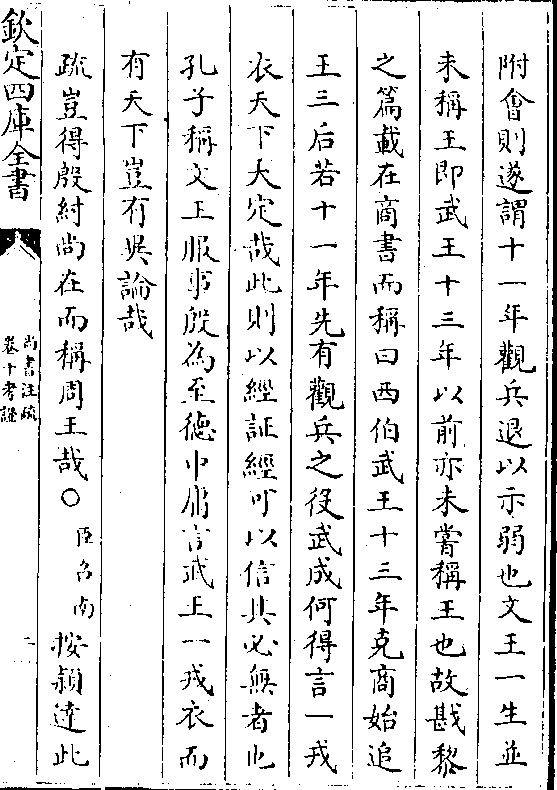 附會則遂謂十一年觀兵退以示弱也文王一生並
未稱王即武王十三年以前亦未嘗稱王也故戡黎
之篇載在商書而稱曰西伯武王十三年克商始追
王三后若十一年先有觀兵之役武成何得言一戎
衣天下大定哉此則以經証經可以信其必無者也
孔子稱文王服事殷為至德中庸言武王一戎衣而
有天下豈有異論哉
疏豈得殷紂尚在而稱周王哉○臣召南按穎達此
欽定四庫全書
尚書注疏
卷十考證